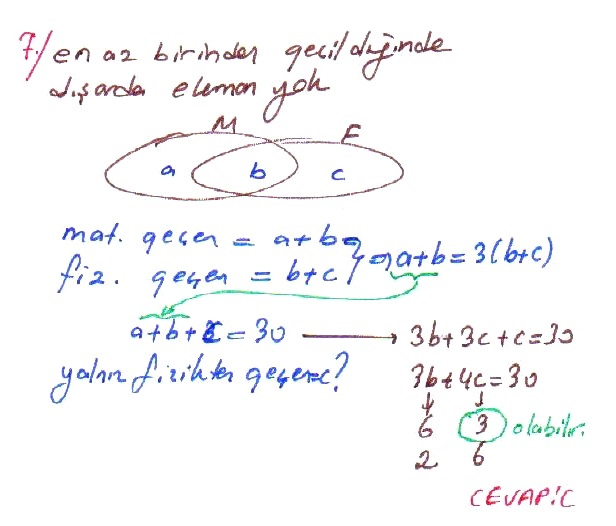 7/ en az birinden geçildiğinde
dışarda eleman yok
M F
a b c
mat. geçen = a+b
fiz. geçen = b+c } ⇒ a+b = 3(b+c)
a+b+c = 30 → 3b+3c+c=30
yalnız fizikten geçen=c? 3b+4c=30
↓ ↓
6 3 olabilir.
2 6
CEVAP:C